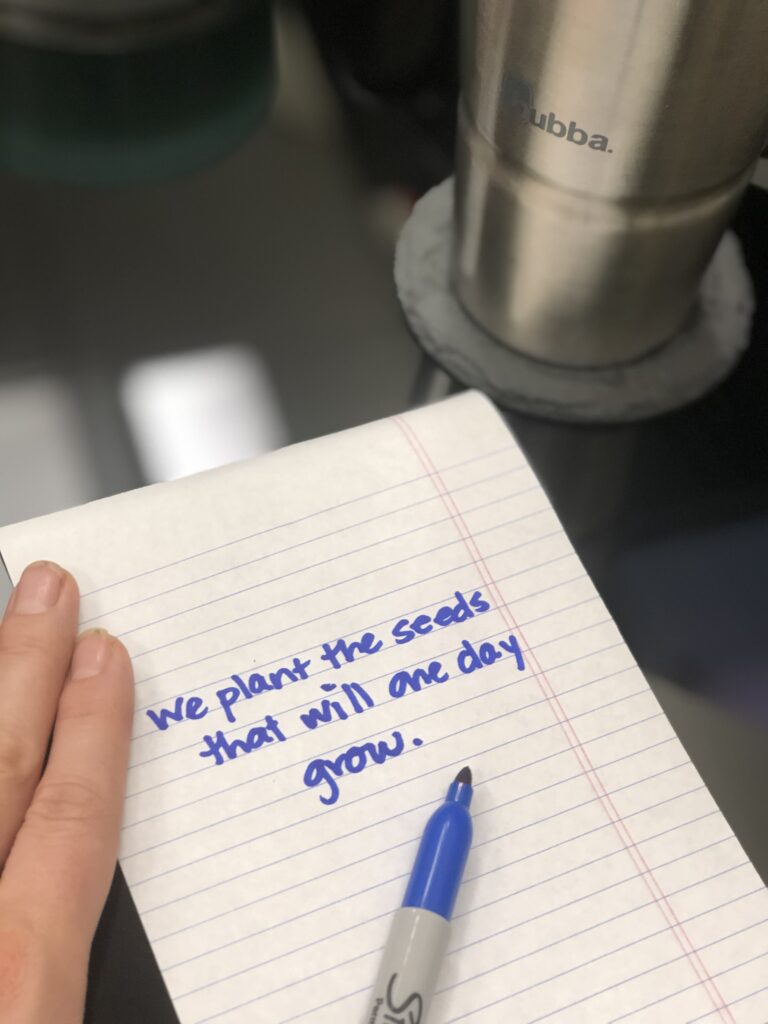 bubba.
We plant the seeds
that will one day
grow.